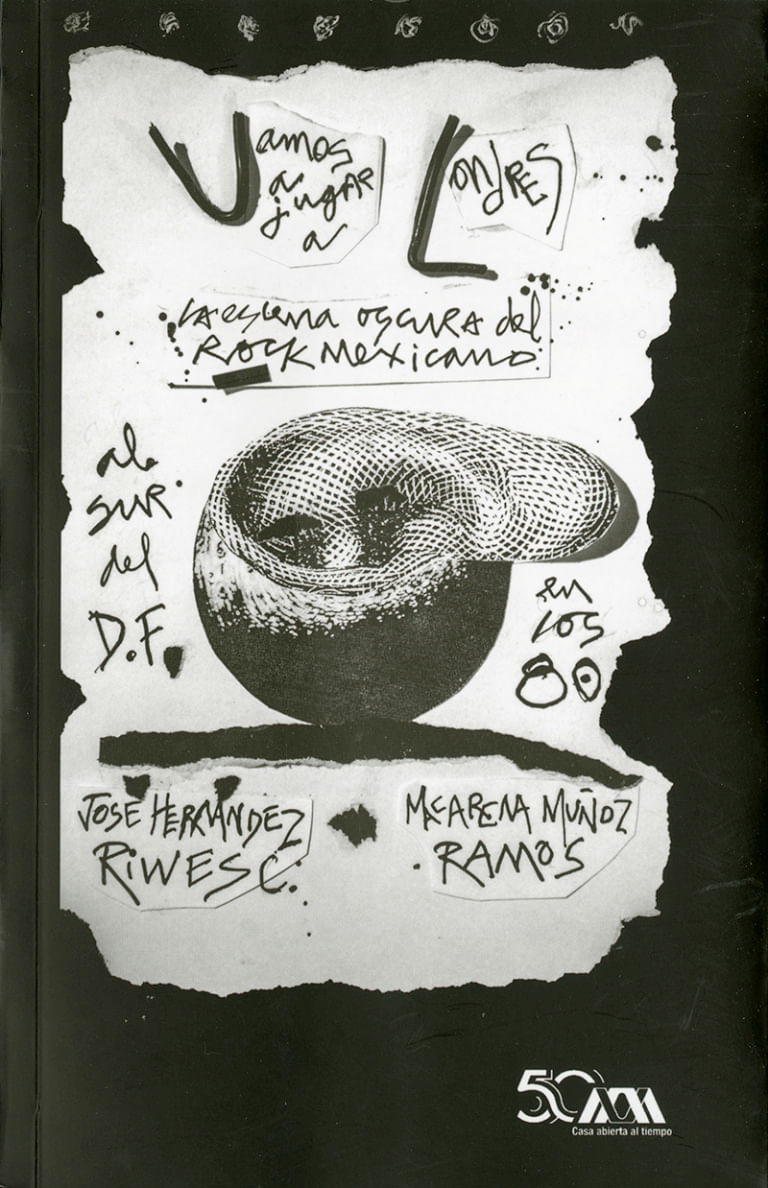 Vamos
a
jugar
a
Londres
la escena oscura del
Rock Mexicano
al
sur
del
D.F.
en
los
80
JOSE HERNÁNDEZ
RIWES C.
MACARENA MUÑOZ
RAMOS
50 UAM
Casa abierta al tiempo